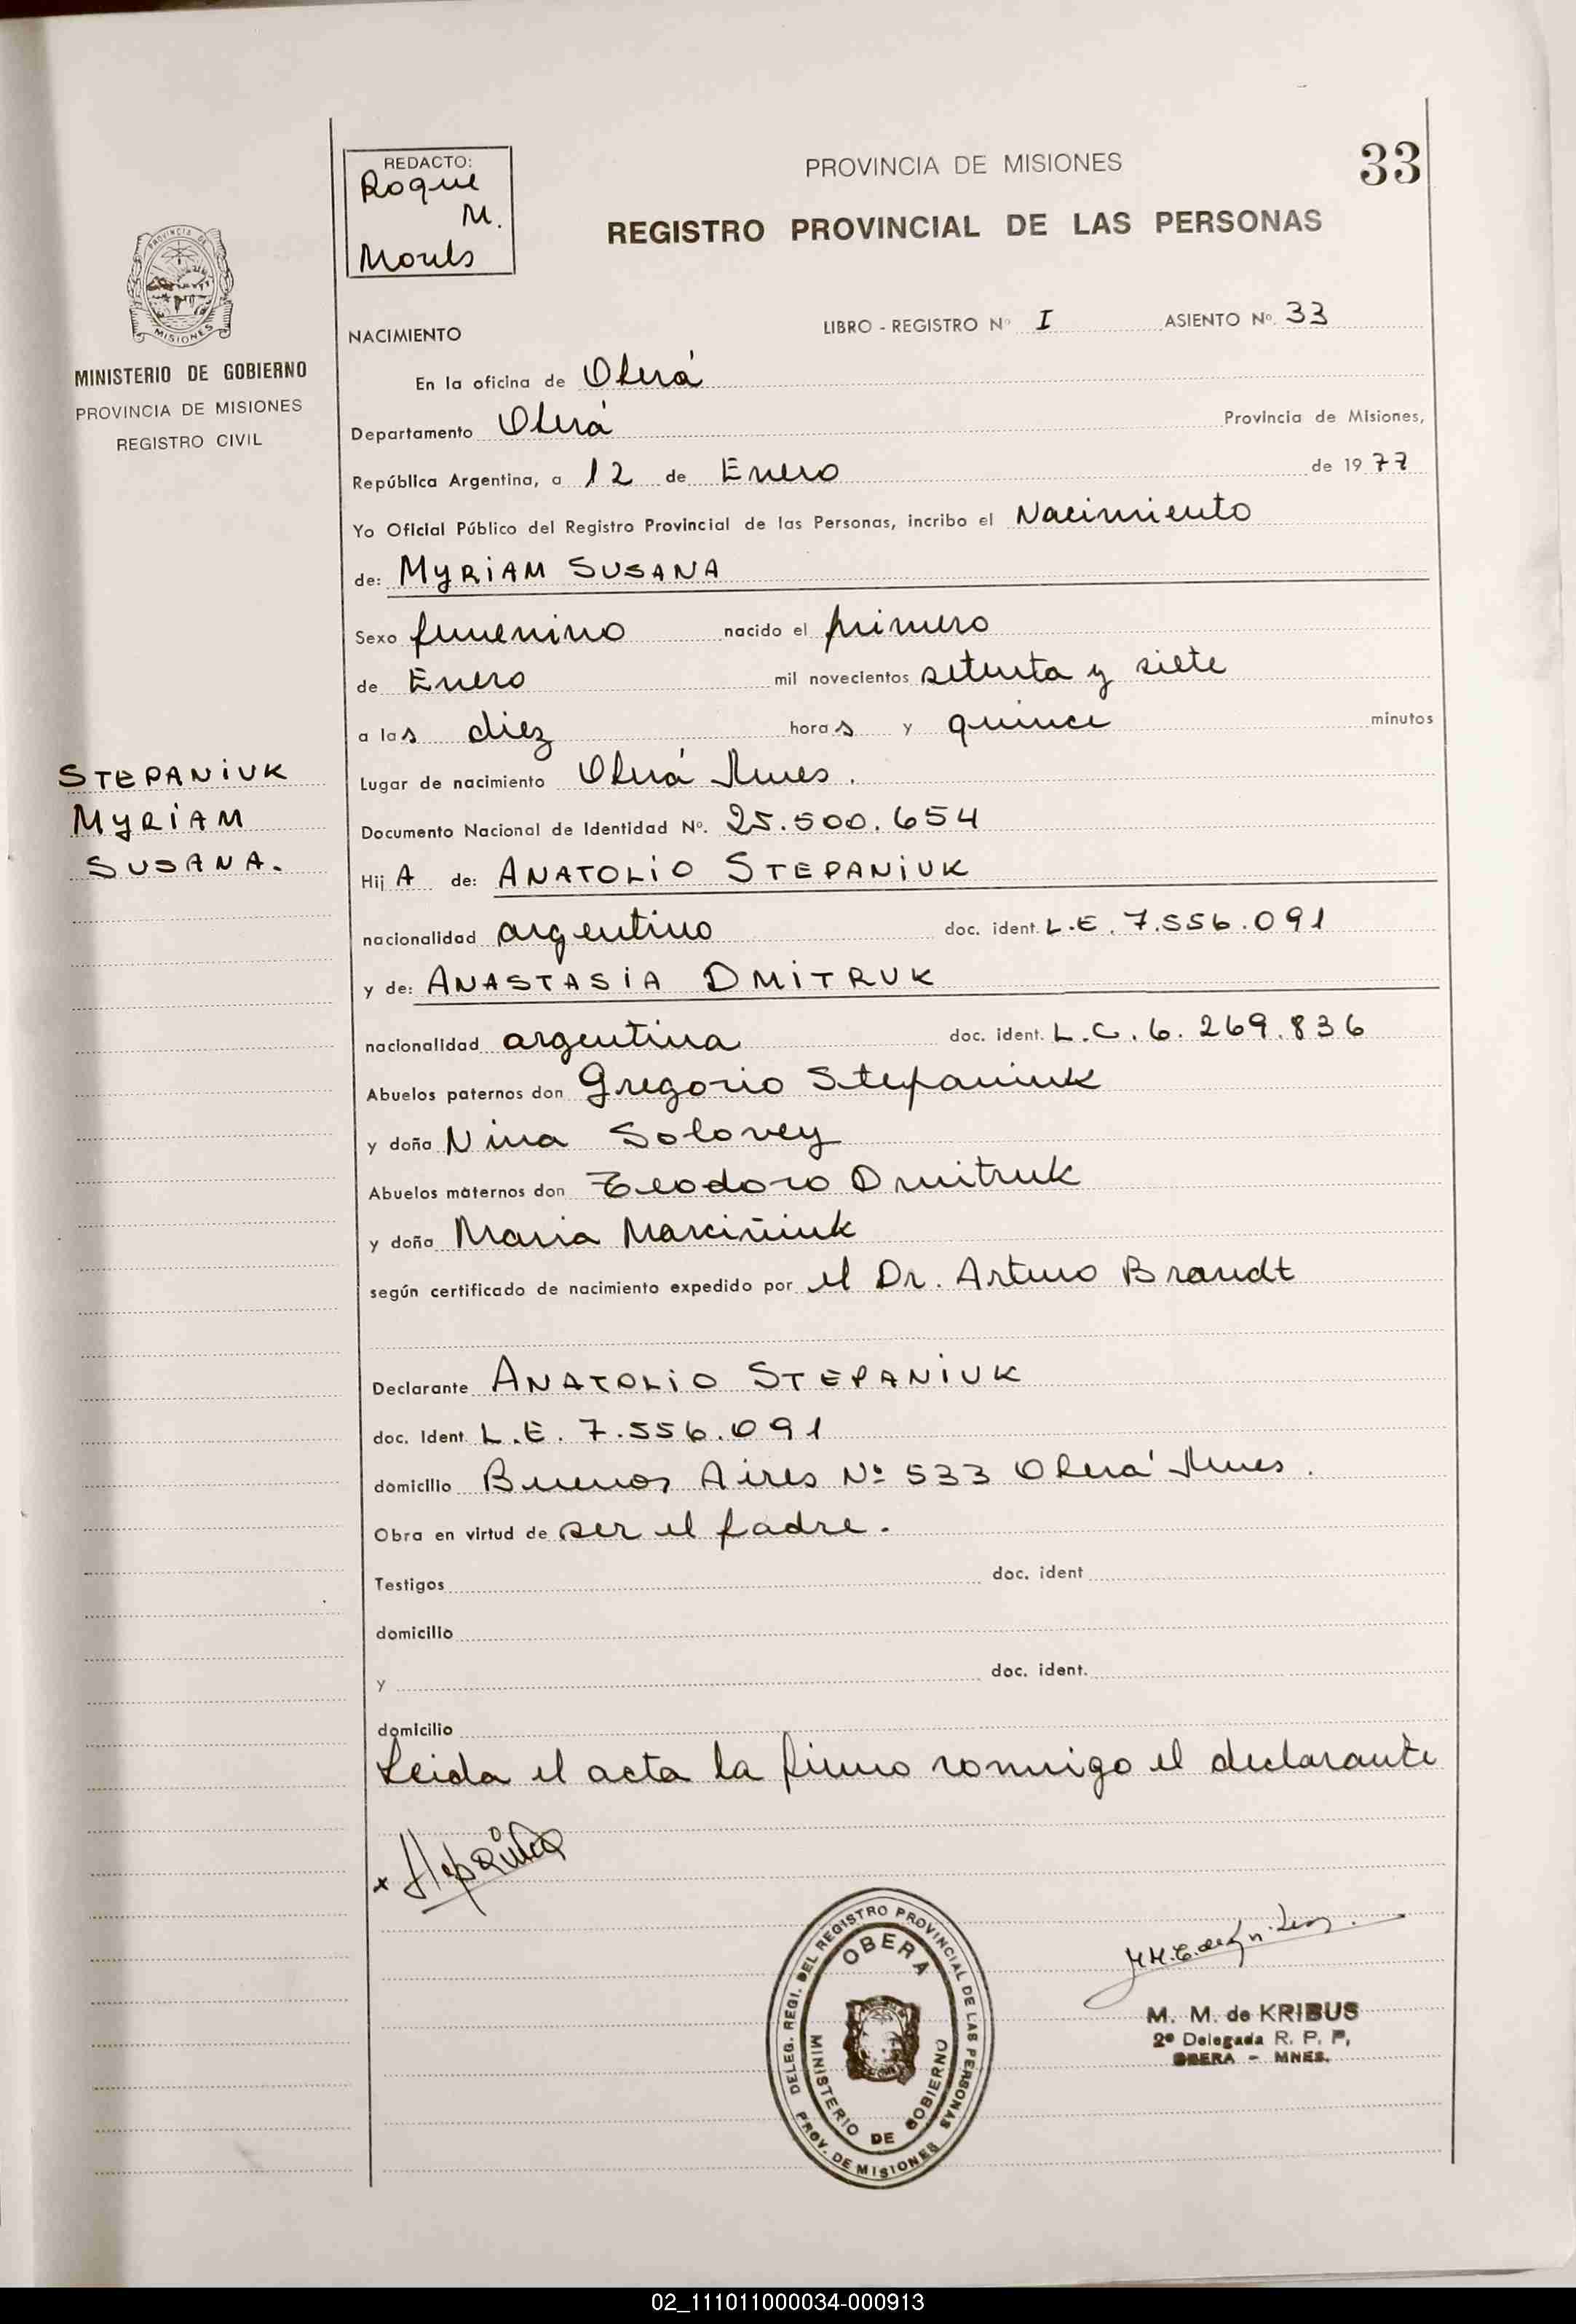 REDACTO:
Roque
M.
PROVINCIA DE MISIONES
33
REGISTRO PROVINCIAL DE LAS PERSONAS
PROVINCIA DE
MISIONES
MINISTERIO DE GOBIERNO
PROVINCIA DE MISIONES
REGISTRO CIVIL
NACIMIENTO LIBRO - REGISTRO Nº I ASIENTO Nº 33
En la oficina de Oberá
Departamento Oberá Provincia de Misiones,
República Argentina, a 12 de Enero de 1977
Yo Oficial Público del Registro Provincial de las Personas, incribo el Nacimiento
de: MYRIAM SUSANA
Sexo femenino nacido el primero
de Enero mil novecientos setenta y siete
a las diez horas y quince minutos
STEPANIUK
MYRIAM
SUSANA.
Lugar de nacimiento Oberá Mnes.
Documento Nacional de Identidad Nº. 25.500.654
Hij A de: ANATOLIO STEPANIUK
nacionalidad argentino doc. ident. L.E. 7.556.091
y de: ANASTASIA DMITRUK
nacionalidad argentina doc. ident. L.C. 6.269.836
Abuelos paternos don Gregorio Stepaniuk
y doña Nina Solovey
Abuelos maternos don Teodoro Dmitruk
y doña Maria Marciñiuk
según certificado de nacimiento expedido por el Dr. Arturo Brandt
Declarante ANATOLIO STEPANIUK
doc. Ident. L.E. 7.556.091
domicilio Buenos Aires Nº 533 Oberá Mnes.
Obra en virtud de ser el padre.
Testigos doc. ident
domicilio
y doc. ident.
domicilio
Leida el acta la firmo conmigo el declarante
x
DELEG. REGI. DEL REGISTRO PROVINCIAL DE LAS PERSONAS
OBERA
MINISTERIO DE GOBIERNO
PROV. DE MISIONES
M. M. de KRIBUS
2º Delegada R. P. P,
OBERA - MNES.
02_111011000034-000913